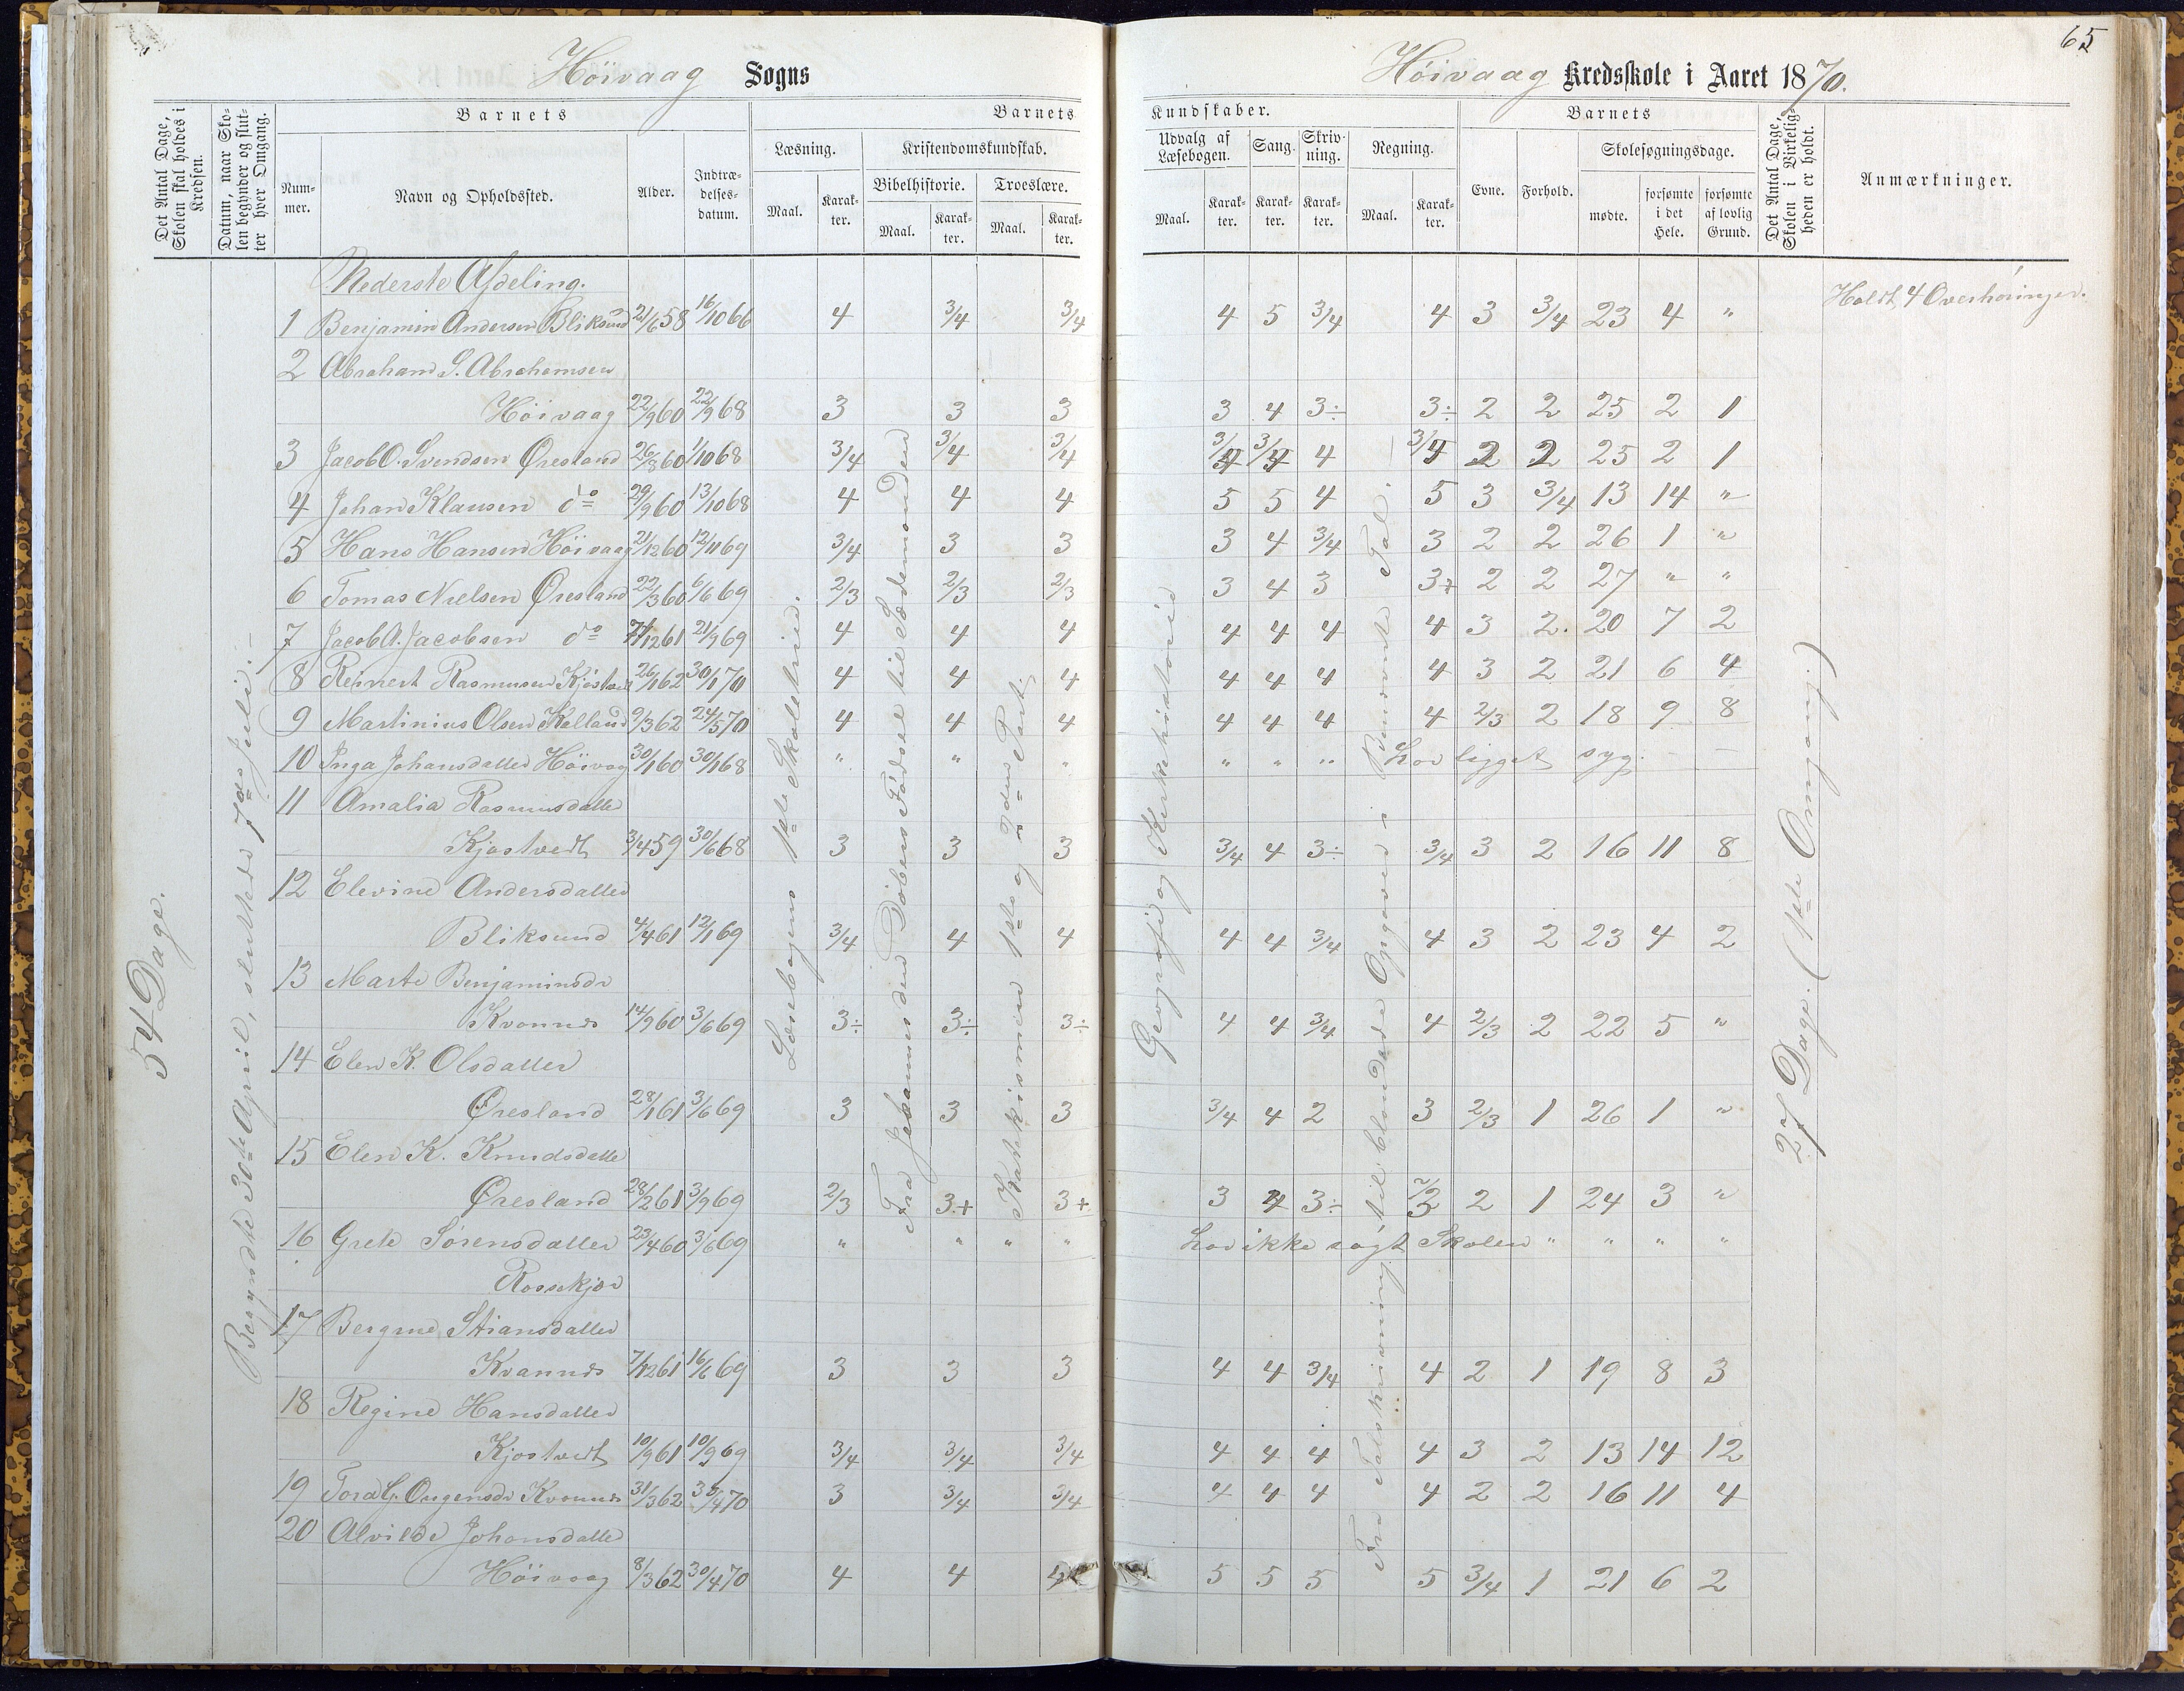 65
Höivaag Sogns
Höivaag Kredsskole i Aaret 1870.
Det Antal Dage, Skolen skal holdes i Kredsen.
Datum, naar Skolen begynder og slutter hver Omgang.
Barnets
Nummer.
Navn og Opholdssted.
Alder.
Indtrædelsesdatum.
Barnets Kundskaber.
Læsning.
Maal.
Karakter.
Kristendomskundskab.
Bibelhistorie.
Maal.
Karakter.
Troeslære.
Maal.
Karakter.
Udvalg af Læsebogen.
Maal.
Karakter.
Sang.
Karakter.
Skrivning.
Karakter.
Regning.
Maal.
Karakter.
Barnets
Evne.
Forhold.
Skolesøgningsdage.
mødte.
forsømte i det Hele.
forsømte af lovlig Grund.
Det Antal Dage, Skolen i Virkeligheden er holdt.
Anmærkninger.
54 Dage.
Begyndte 30te April, sluttede 7de Juli.
Læsebogens 1ste Skoletrin.
Fra Johannes den Döbers Födsel til Sædemanden
Katekismen 1ste og 2den Part.
Geografi og Kirkehistorie
Fra Talskrivning til blandede Opgaver i Benævnte Tal.
27 Dage. (1ste Omgang.)
Holdt 4 Overhöringer.
Nederste Afdeling.
1 Benjamin Andersen Bliksund 21/6 58 16/10 66 4 3/4 3/4 4 5 3/4 4 3 3/4 23 4 "
2 Abraham S. Abrahamsen
Höivaag 22/9 60 22/9 68 3 3 3 3 4 3÷ 3÷ 2 2 25 2 1
3 Jacob O. Svendsen Øresland 26/8 60 1/10 68 3/4 3/4 3/4 3/4 3/4 4 3/4 2 2 25 2 1
4 Johan Klausen do 29/9 60 13/10 68 4 4 4 5 5 4 5 3 3/4 13 14 "
5 Hans Hansen Höivaag 21/12 60 12/11 69 3/4 3 3 3 4 3/4 3 2 2 26 1 "
6 Tomas Nielsen Øresland 22/3 60 6/6 69 2/3 2/3 2/3 3 4 3 3+ 2 2 27 " "
7 Jacob A. Jacobsen do 11/12 61 21/9 69 4 4 4 4 4 4 4 3 2. 20 7 2
8 Reinert Rasmussen Kjöstvedt 26/1 62 30/1 70 4 4 4 4 4 4 4 3 2 21 6 4
9 Martinius Olsen Kalland 9/3 62 24/5 70 4 4 4 4 4 4 4 2/3 2 18 9 8
10 Inga Johansdatter Höivog 30/1 60 30/1 68 " " " " " " har ligget syg.
11 Amalia Rasmusdatter
Kjøstvedt 3/4 59 30/6 68 3 3 3 3/4 4 3÷ 3/4 3 2 16 11 8
12 Elevine Andersdatter
Bliksund 4/4 61 12/1 69 3/4 4 4 4 4 3/4 4 3 2 23 4 2
13 Marte Benjaminsdr
Kvannes 14/9 60 3/6 69 3÷ 3÷ 3÷ 4 4 3/4 4 2/3 2 22 5 "
14 Elen K. Olsdatter
Øresland 28/1 61 3/6 69 3 3 3 3/4 4 2 3 2/3 1 26 1 "
15 Elen K. Knudsdatter
Øresland 28/2 61 3/9 69 2/3 3+ 3+ 3 4 3÷ 2/3 2 1 24 3 "
16 Grete Sörensdatter 23/4 60 3/6 69 " " " " har ikke sögt Skolen " " " "
17 Bergine Stiansdatter
Kvannes 7/12 61 16/6 69 3 3 3 4 4 3/4 4 2 1 19 8 3
18 Regine Hansdatter
Kjøstvedt 10/9 61 10/9 69 3/4 3/4 3/4 4 4 4 4 3 2 13 14 12
19 Kvannes 31/3 62 70 3 3/4 3/4 4 4 4 4 2 2 16 11 4
20 Alvilde Johansdatter
Höivaag 8/3 62 30/4 70 4 4 4 5 5 5 5 3/4 1 21 6 2